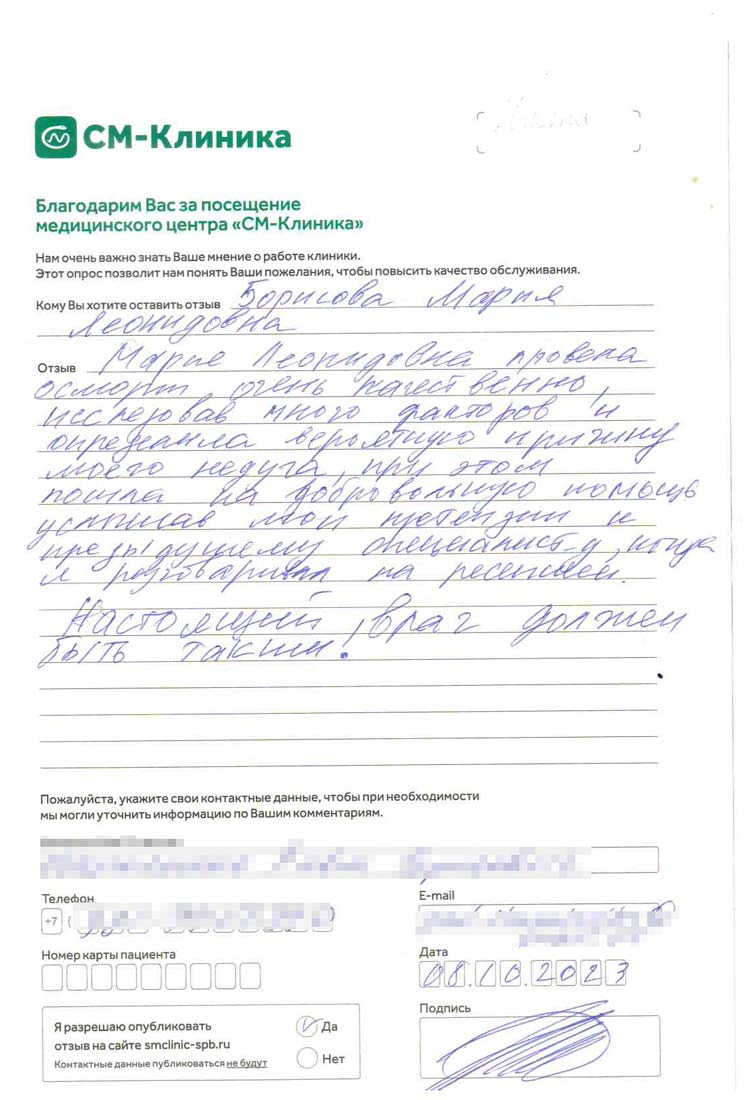 СМ-Клиника
Благодарим Вас за посещение
медицинского центра «СМ-Клиника»
Нам очень важно знать Ваше мнение о работе клиники.
Этот опрос позволит нам понять Ваши пожелания, чтобы повысить качество обслуживания.
Кому Вы хотите оставить отзыв Борисова Мария
Леонидовна
Отзыв Мария Леонидовна провела
осмотр очень качественно,
исследовав много факторов и
определила вероятную причину
моего недуга, при этом
пошла на добровольную помощь
услышав мои претензии к
предыдущему специалисту, когда
я разговаривал на ресепшен.
Настоящий врач должен
быть таким!
Пожалуйста, укажите свои контактные данные, чтобы при необходимости
мы могли уточнить информацию по Вашим комментариям.
Телефон
+7 (
E-mail
Номер карты пациента
Дата
08.10.2023
Я разрешаю опубликовать
отзыв на сайте smclinic-spb.ru
Контактные данные публиковаться не будут
Да
Нет
Подпись